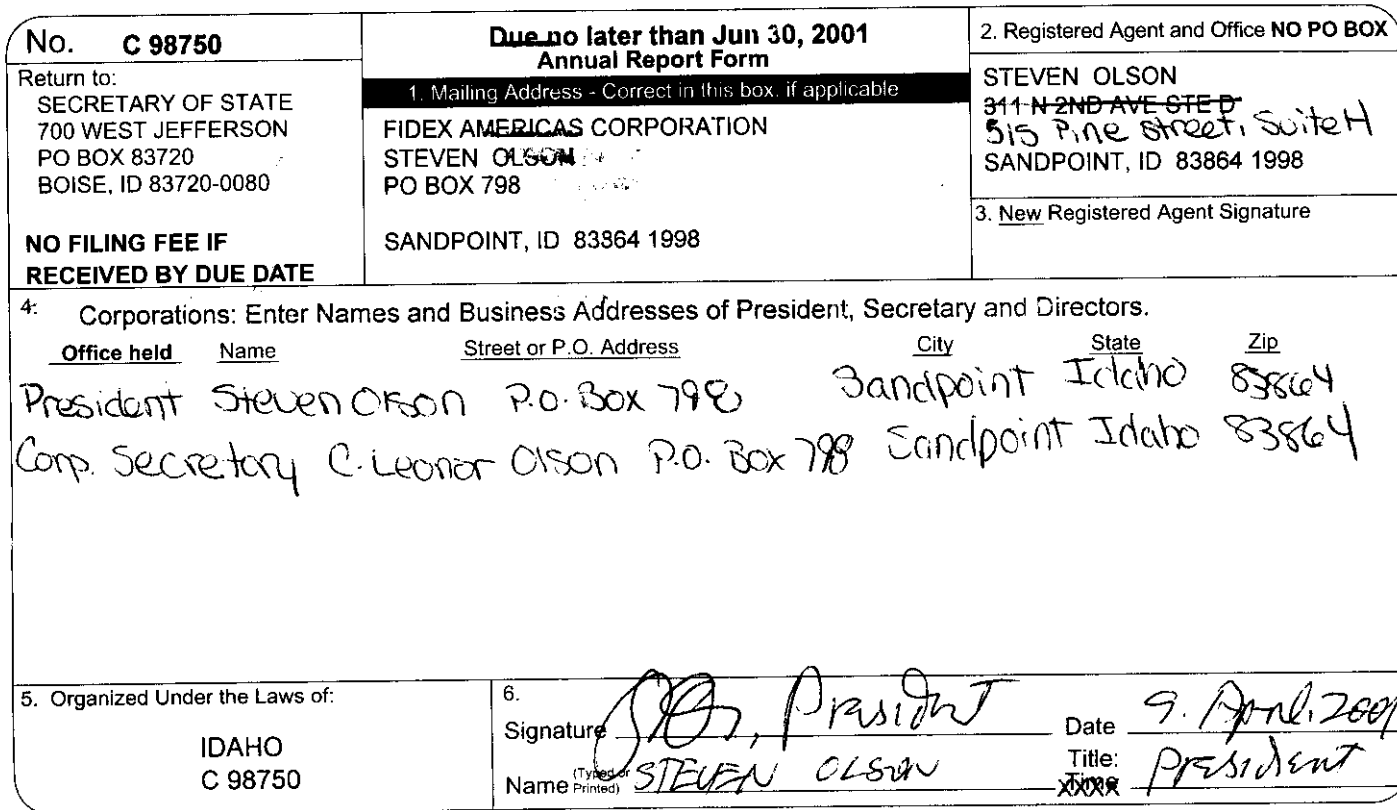 No. C 98750
Return to:
SECRETARY OF STATE
700 WEST JEFFERSON
PO BOX 83720
BOISE, ID 83720-0080
NO FILING FEE IF
RECEIVED BY DUE DATE
Due no later than Jun 30, 2001
Annual Report Form
1. Mailing Address - Correct in this box, if applicable
FIDEX AMERICAS CORPORATION
STEVEN OLSON
PO BOX 798
SANDPOINT, ID 83864 1998
2. Registered Agent and Office NO PO BOX
STEVEN OLSON
311 N 2ND AVE STE D
515 Pine Street, Suite H
SANDPOINT, ID 83864 1998
3. New Registered Agent Signature
4. Corporations: Enter Names and Business Addresses of President, Secretary and Directors.
Office held Name Street or P.O. Address City State Zip
President Steven Olson P.O. Box 798 Sandpoint Idaho 83864
Corp. Secretary C. Leonor Olson P.O. Box 798 Sandpoint Idaho 83864
5. Organized Under the Laws of:
IDAHO
C 98750
6.
Signature President Date 9. April. 2001
Name (Typed or Printed) STEVEN OLSON Title: President